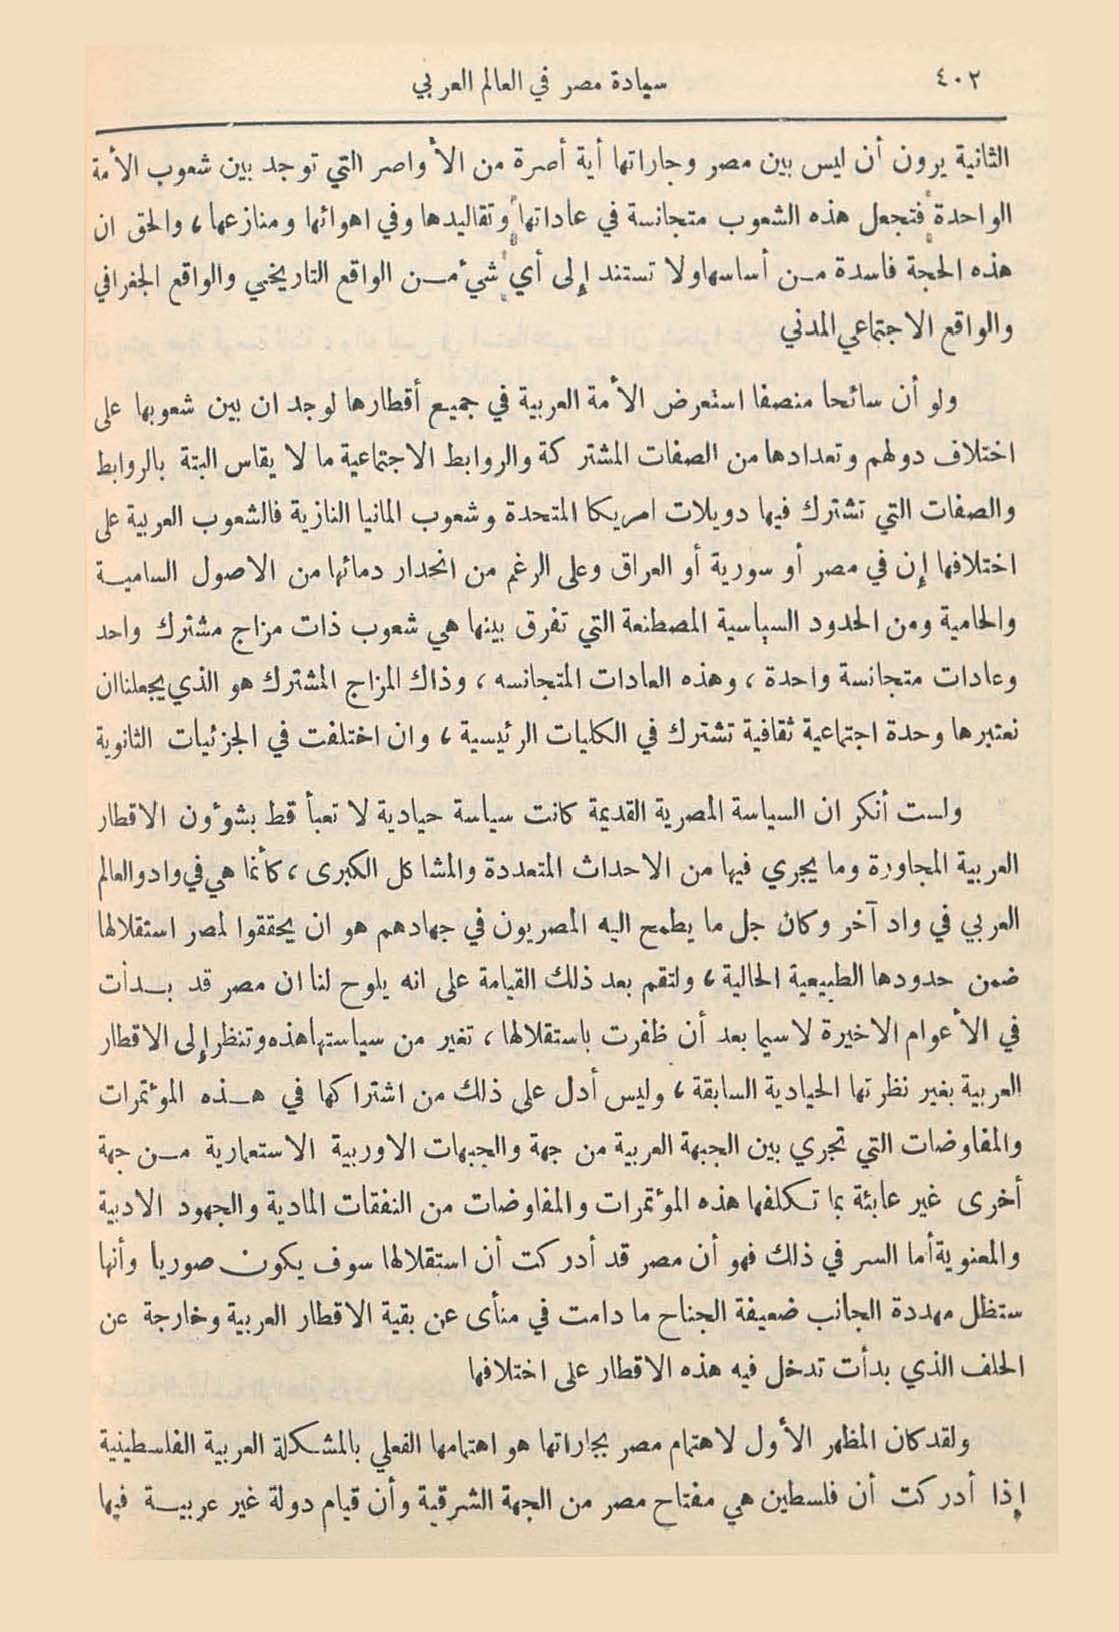 ٤٠٢
سيادة مصر في العالم العربي
الثانية يرون أن ليس بين مصر وجاراتها أية أصرة من الأواصر التي توجد بين شعوب الأمة
الواحدة فتجعل هذه الشعوب متجانسة في عاداتها وتقاليدها وفي اهوائها ومنازعها، والحق ان
هذه الحجة فاسدة من أساسها ولا تستند إلى أي شيء من الواقع التاريخي والواقع الجغرافي
والواقع الاجتماعي المدني
ولو أن سائحا منصفا استعرض الأمة العربية في جميع أقطارها لوجد ان بين شعوبها على
اختلاف دولهم وتعدادها من الصفات المشتركة والروابط الاجتماعية ما لا يقاس البتة بالروابط
والصفات التي تشترك فيها دويلات امريكا المتحدة وشعوب المانيا النازية فالشعوب العربية على
اختلافها إن في مصر أو سورية أو العراق وعلى الرغم من انحدار دمائها من الاصول السامية
والحامية ومن الحدود السياسية المصطنعة التي تفرق بينها هي شعوب ذات مزاج مشترك واحد
وعادات متجانسة واحدة، وهذه العادات المتجانسه، وذاك المزاج المشترك هو الذي يجعلنا ان
نعتبرها وحدة اجتماعية ثقافية تشترك في الكليات الرئيسية، وان اختلفت في الجزئيات الثانوية
ولست أنكر ان السياسة المصرية القديمة كانت سياسة حيادية لا تعبأ قط بشؤون الاقطار
العربية المجاورة وما يجري فيها من الاحداث المتعددة والمشاكل الكبرى، كأنما هي في واد والعالم
العربي في واد آخر وكان جل ما يطمح اليه المصريون في جهادهم هو ان يحققوا لمصر استقلالها
ضمن حدودها الطبيعية الحالية، ولتقم بعد ذلك القيامة على انه يلوح لنا ان مصر قد بدأت
في الأعوام الاخيرة لا سيما بعد أن ظفرت باستقلالها، تغير من سياستها هذه وتنظر إلى الاقطار
العربية بغير نظرتها الحيادية السابقة، وليس أدل على ذلك من اشتراكها في هذه المؤتمرات
والمفاوضات التي تجري بين الجبهة العربية من جهة والجبهات الاوربية الاستعمارية من جهة
أخرى غير عابئة بما تكلفها هذه المؤتمرات والمفاوضات من النفقات المادية والجهود الادبية
والمعنوية أما السر في ذلك فهو أن مصر قد أدركت أن استقلالها سوف يكون صوريا وأنها
ستظل مهددة الجانب ضعيفة الجناح ما دامت في منأى عن بقية الاقطار العربية وخارجة عن
الحلف الذي بدأت تدخل فيه هذه الاقطار على اختلافها
ولقد كان المظهر الأول لاهتمام مصر بجاراتها هو اهتمامها الفعلي بالمشكلة العربية الفلسطينية
إذا أدركت أن فلسطين هي مفتاح مصر من الجهة الشرقية وأن قيام دولة غير عربية فيها